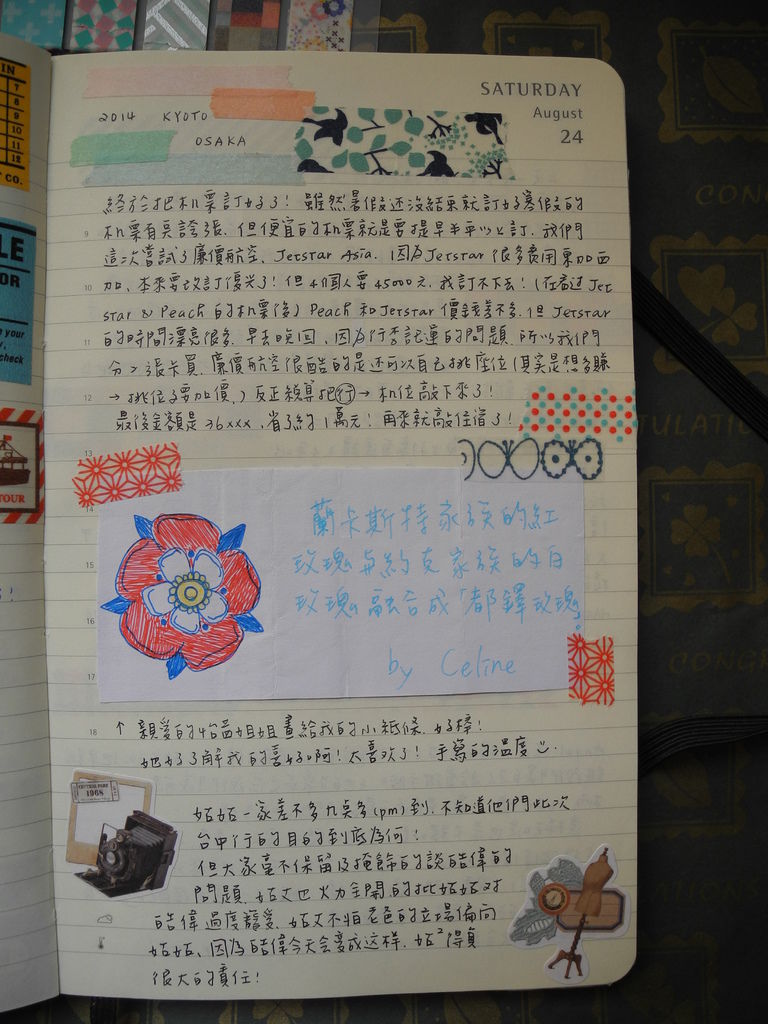 IN
7
8
9
10
11
12
CO.
LE
OR
your
check
TOUR
SATURDAY
August
24
2014 KYOTO
OSAKA
終於把机票訂好了！雖然暑假还沒結束就訂好寒假的
机票有臭誇張，但便宜的机票就是要提早半年以上訂．我們
這次嘗試了廉價航空，Jetstar Asia．因為Jetstar 很多痕用東加西
加，本來要改訂復兴了！但4個人要45000元，我訂不下去！(在看过Jet
star & Peach 的机票後) Peach 和Jetstar 價錢差不多，但 Jetstar
的時間漂亮很多，早去晚回，因為行李託運的問題，所以我們
分2張卡買．廉價航空很酷的是还可以自己挑座位(其实是想多賺
→挑位子要加價．) 反正領導把行→机位敲下來了！
最後金額是26xxx，省了約1萬元！再來就敲住宿了！
9
10
11
12
13
14
15
16
17
18
蘭卡斯特家族的紅
玫瑰與約克家族的白
玫瑰融合成「都鐸玫瑰」
by Celine
↑ 親愛的4台姐姐畫給我的小紙條，好棒！
她好了解我的喜好啊！太喜欢了！手寫的溫度
CENTRAL PARK
1968
姑姑一家差不多九点多(pm)到，不知道他們此次
台中行的目的到底為何！
但大家毫不保留及掩飾的談皓偉的
問題，姑丈也火力全開的批姑姑对
皓偉過度寵愛，姑丈不怕老爸的立場偏向
姑姑、因為皓偉今天会變成这样，姑²得負
很大的責任！